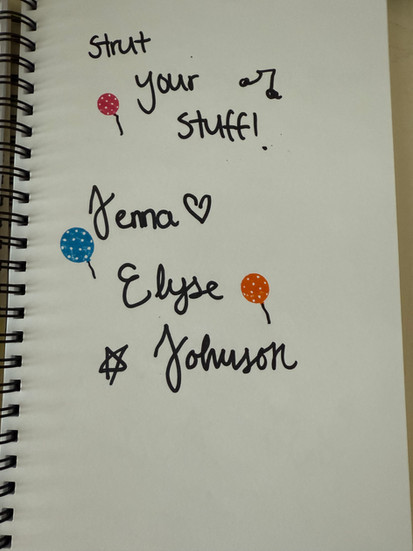 Strut
your
stuff!
Jenna
Elyse
Johnson